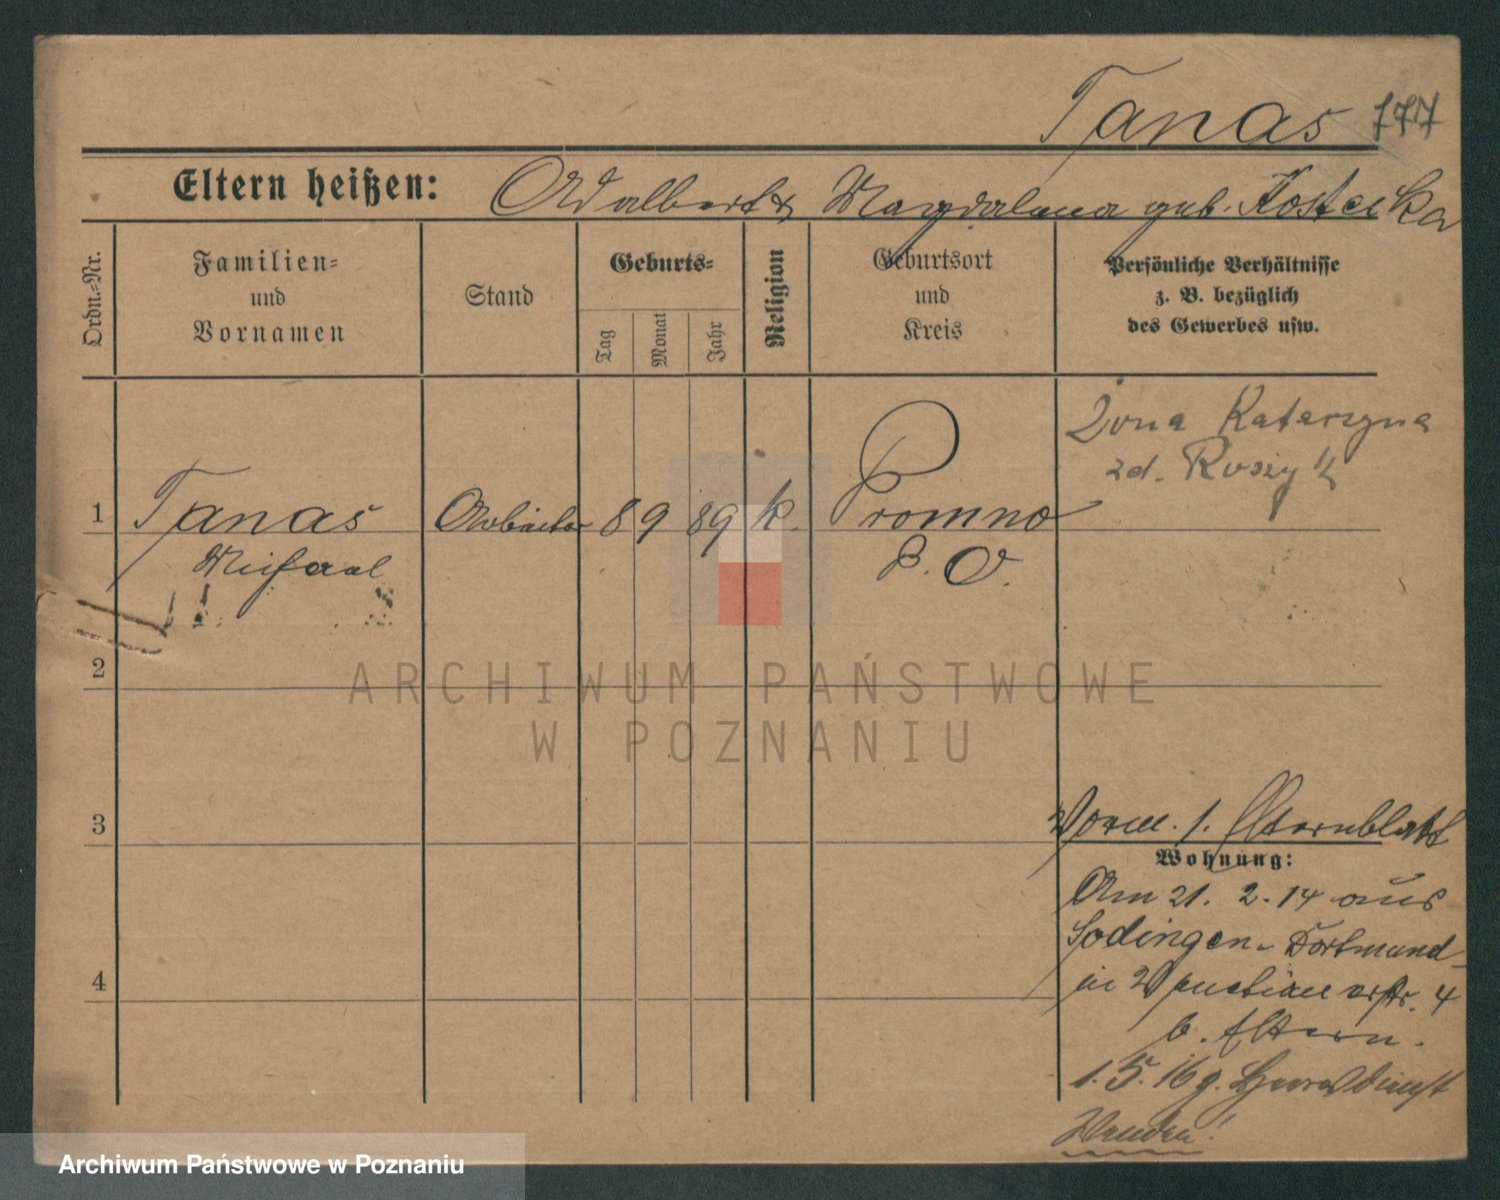 Tanas 777
Eltern heißen: Adalbert & Magdalena geb. Kostecka
Ordn.-Nr.
Familien-
und
Vornamen
Stand
Geburts-
Tag
Monat
Jahr
Religion
Geburtsort
und
Kreis
Persönliche Verhältnisse
z. B. bezüglich
des Gewerbes usw.
Żona Katarzyna
zd. Roszyk
1 Tanas Arbeiter 8 9 89 k. Promno
Michael P. O.
2
3
4
Vorm. s. Elternblatt
Wohnung:
Am 21. 2. 14 aus
Sodingen-Dortmund
in 4
b. Eltern.
1. 5. 16 z. Heeresdienst
Wenden!
ARCHIWUM PAŃSTWOWE
W POZNANIU
Archiwum Państwowe w Poznaniu